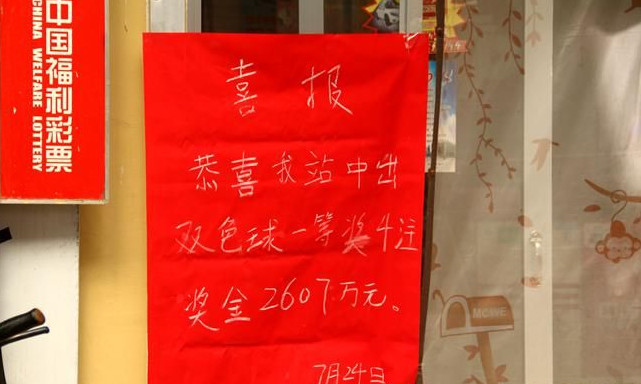 中国福利彩票
CHINA WELFARE LOTTERY
喜报
恭喜我站中出
双色球一等奖4注
奖金2607万元。
7月24日
MCWE